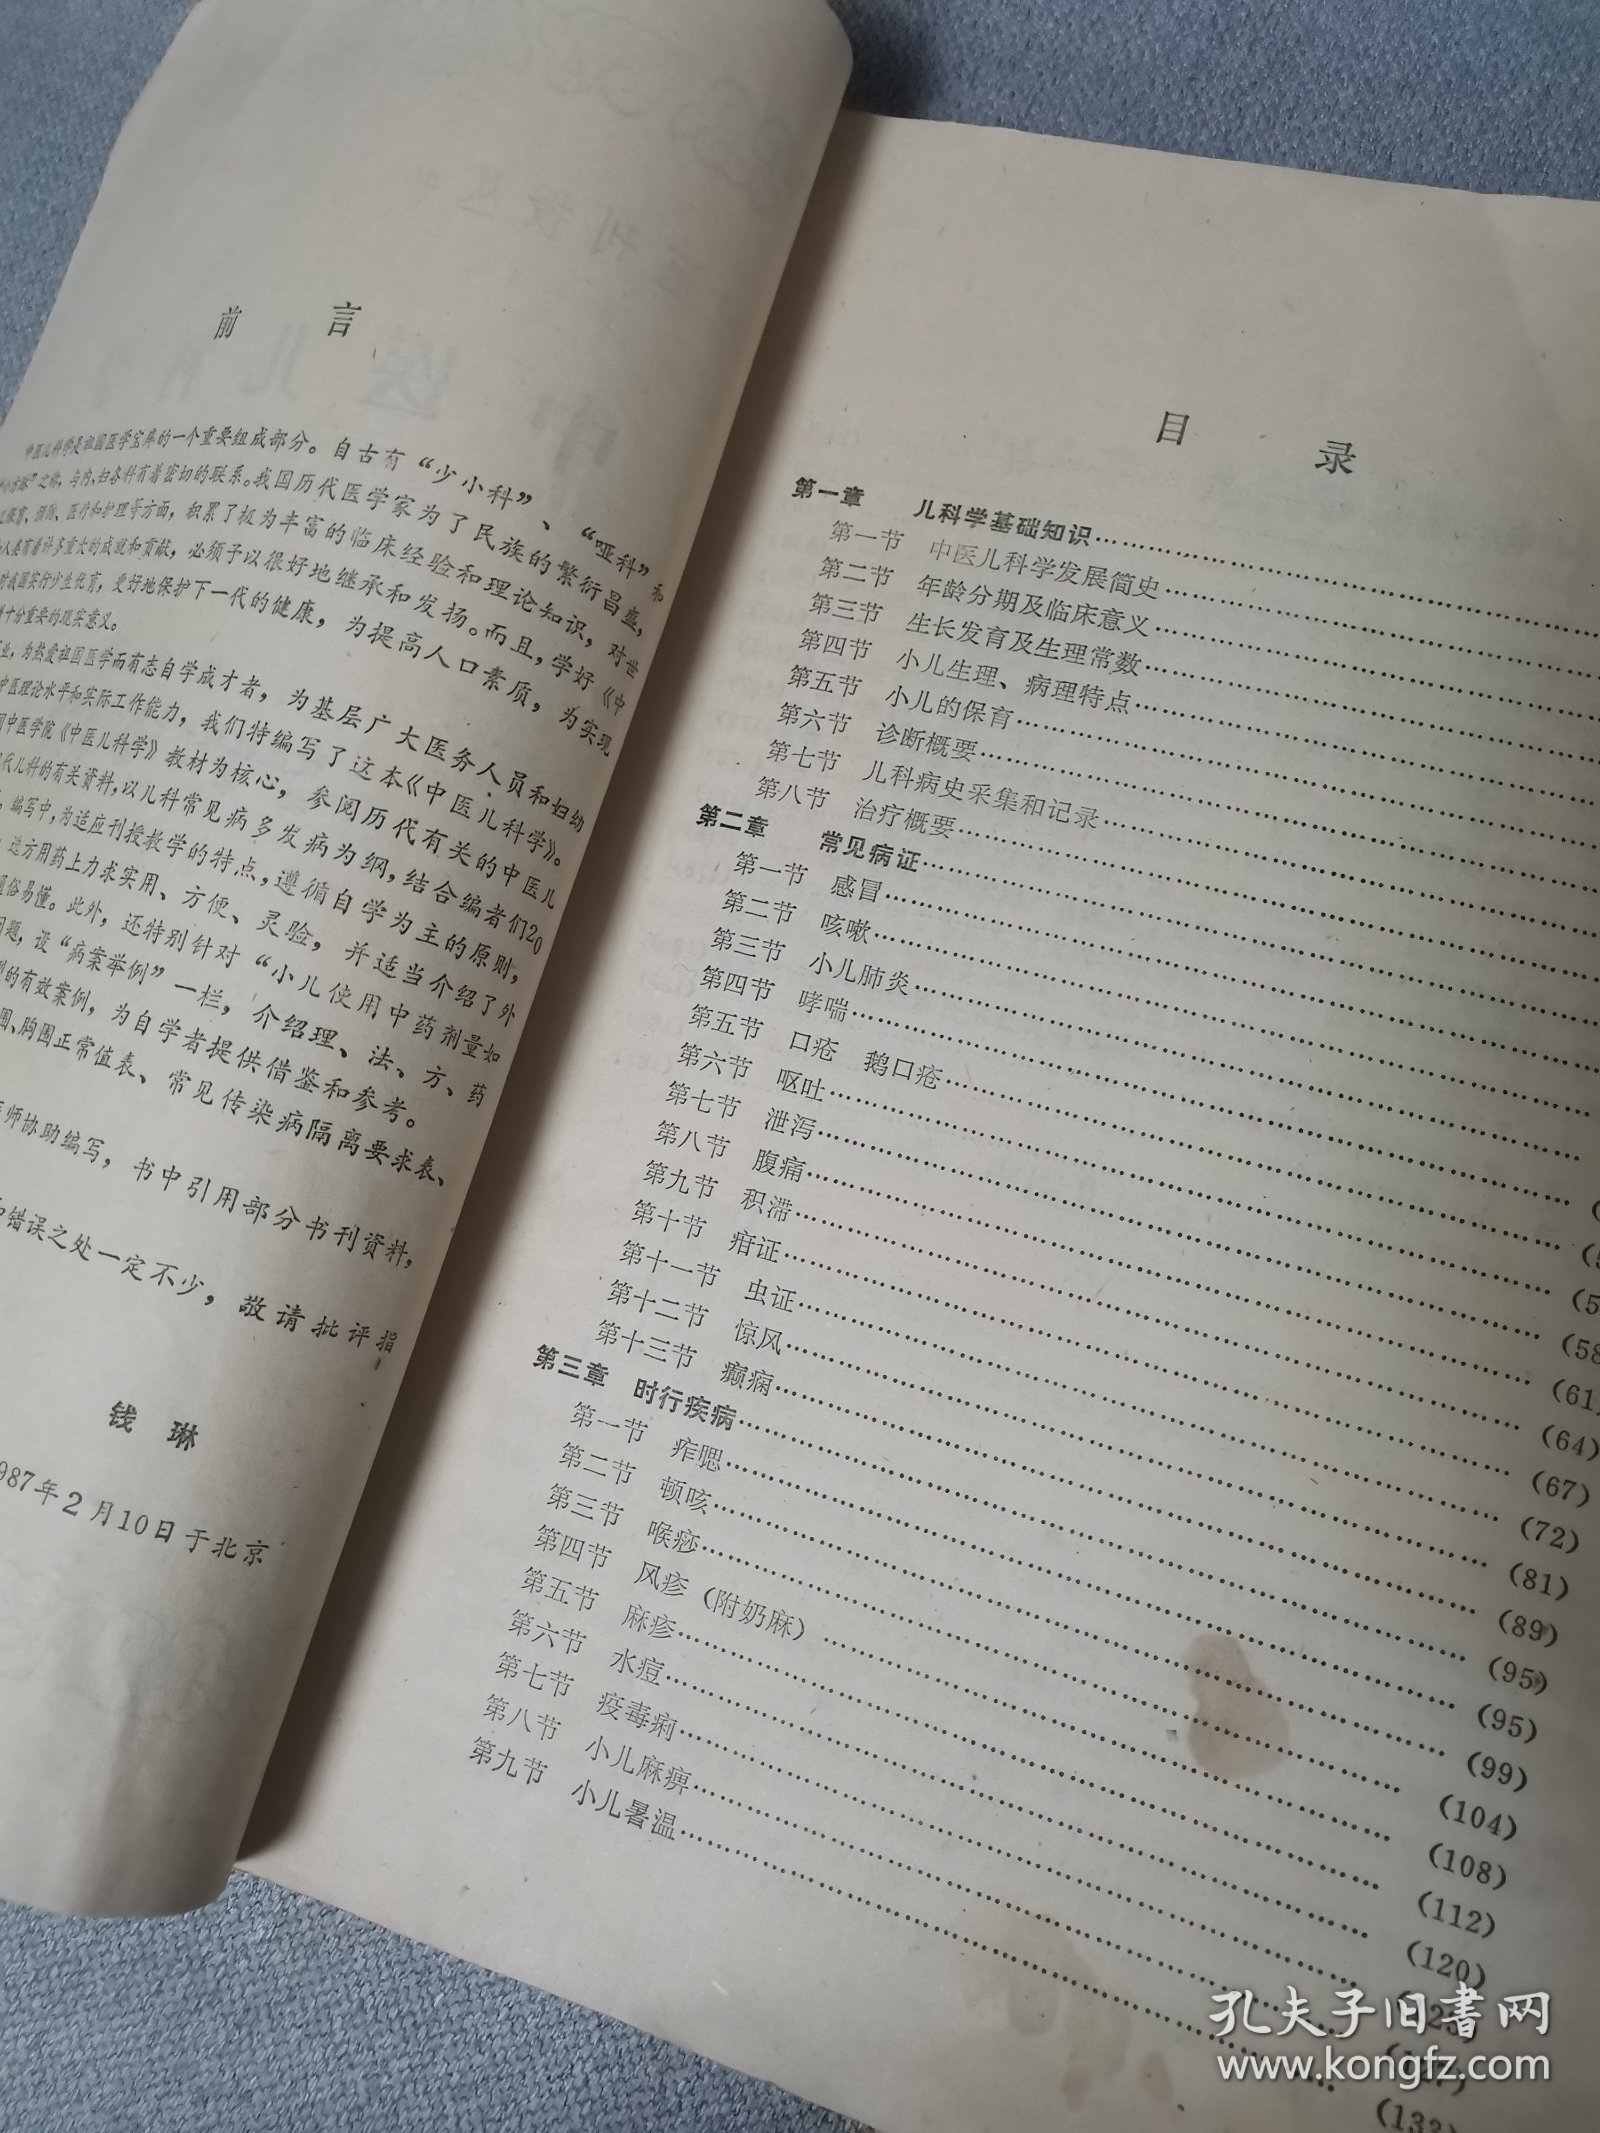 前言
中医儿科学是祖国医学宝库的一个重要组成部分。自古有“少小科”、“哑科”和
之称，与内、妇各科有着密切的联系。我国历代医学家为了民族的繁衍昌盛，
医疗和护理等方面，积累了极为丰富的临床经验和理论知识，对世
人类有着许多重大的成就和贡献，必须予以很好地继承和发扬。而且，学好《中
对我国实行少生优育，更好地保护下一代的健康，为提高人口素质，为实现
十分重要的现实意义。
业，为热爱祖国医学而有志自学成才者，为基层广大医务人员和妇幼
中医理论水平和实际工作能力，我们特编写了这本《中医儿科学》。
中医学院《中医儿科学》教材为核心，参阅历代有关的中医儿
代儿科的有关资料，以儿科常见病多发病为纲，结合编者们20
编写中，为适应刊授教学的特点，遵循自学为主的原则，
选方用药上力求实用、方便、灵验，并适当介绍了外
通俗易懂。此外，还特别针对“小儿使用中药剂量如
问题，设“病案举例”一栏，介绍理、法、方、药
的有效案例，为自学者提供借鉴和参考。
围、胸围正常值表、常见传染病隔离要求表、
医师协助编写，书中引用部分书刊资料，
错误之处一定不少，敬请批评指
钱琳
987年2月10日于北京
目录
第一章 儿科学基础知识
第一节 中医儿科学发展简史
第二节 年龄分期及临床意义
第三节 生长发育及生理常数
第四节 小儿生理、病理特点
第五节 小儿的保育
第六节 诊断概要
第七节 儿科病史采集和记录
第八节 治疗概要
第二章 常见病证
第一节 感冒
第二节 咳嗽
第三节 小儿肺炎
第四节 哮喘
第五节 口疮 鹅口疮
第六节 呕吐 (58
第七节 泄泻 (61)
第八节 腹痛 (64)
第九节 积滞 (67)
第十节 疳证 (72)
第十一节 虫证 (81)
第十二节 惊风 (89)
第十三节 癫痫 (95)
第三章 时行疾病 (95)
第一节 痄腮 (99)
第二节 顿咳 (104)
第三节 喉痧 (108)
第四节 风疹（附奶麻） (112)
第五节 麻疹 (120)
第六节 水痘
第七节 疫毒痢
第八节 小儿麻痹 (133)
第九节 小儿暑温
孔夫子旧书网
www.kongfz.com